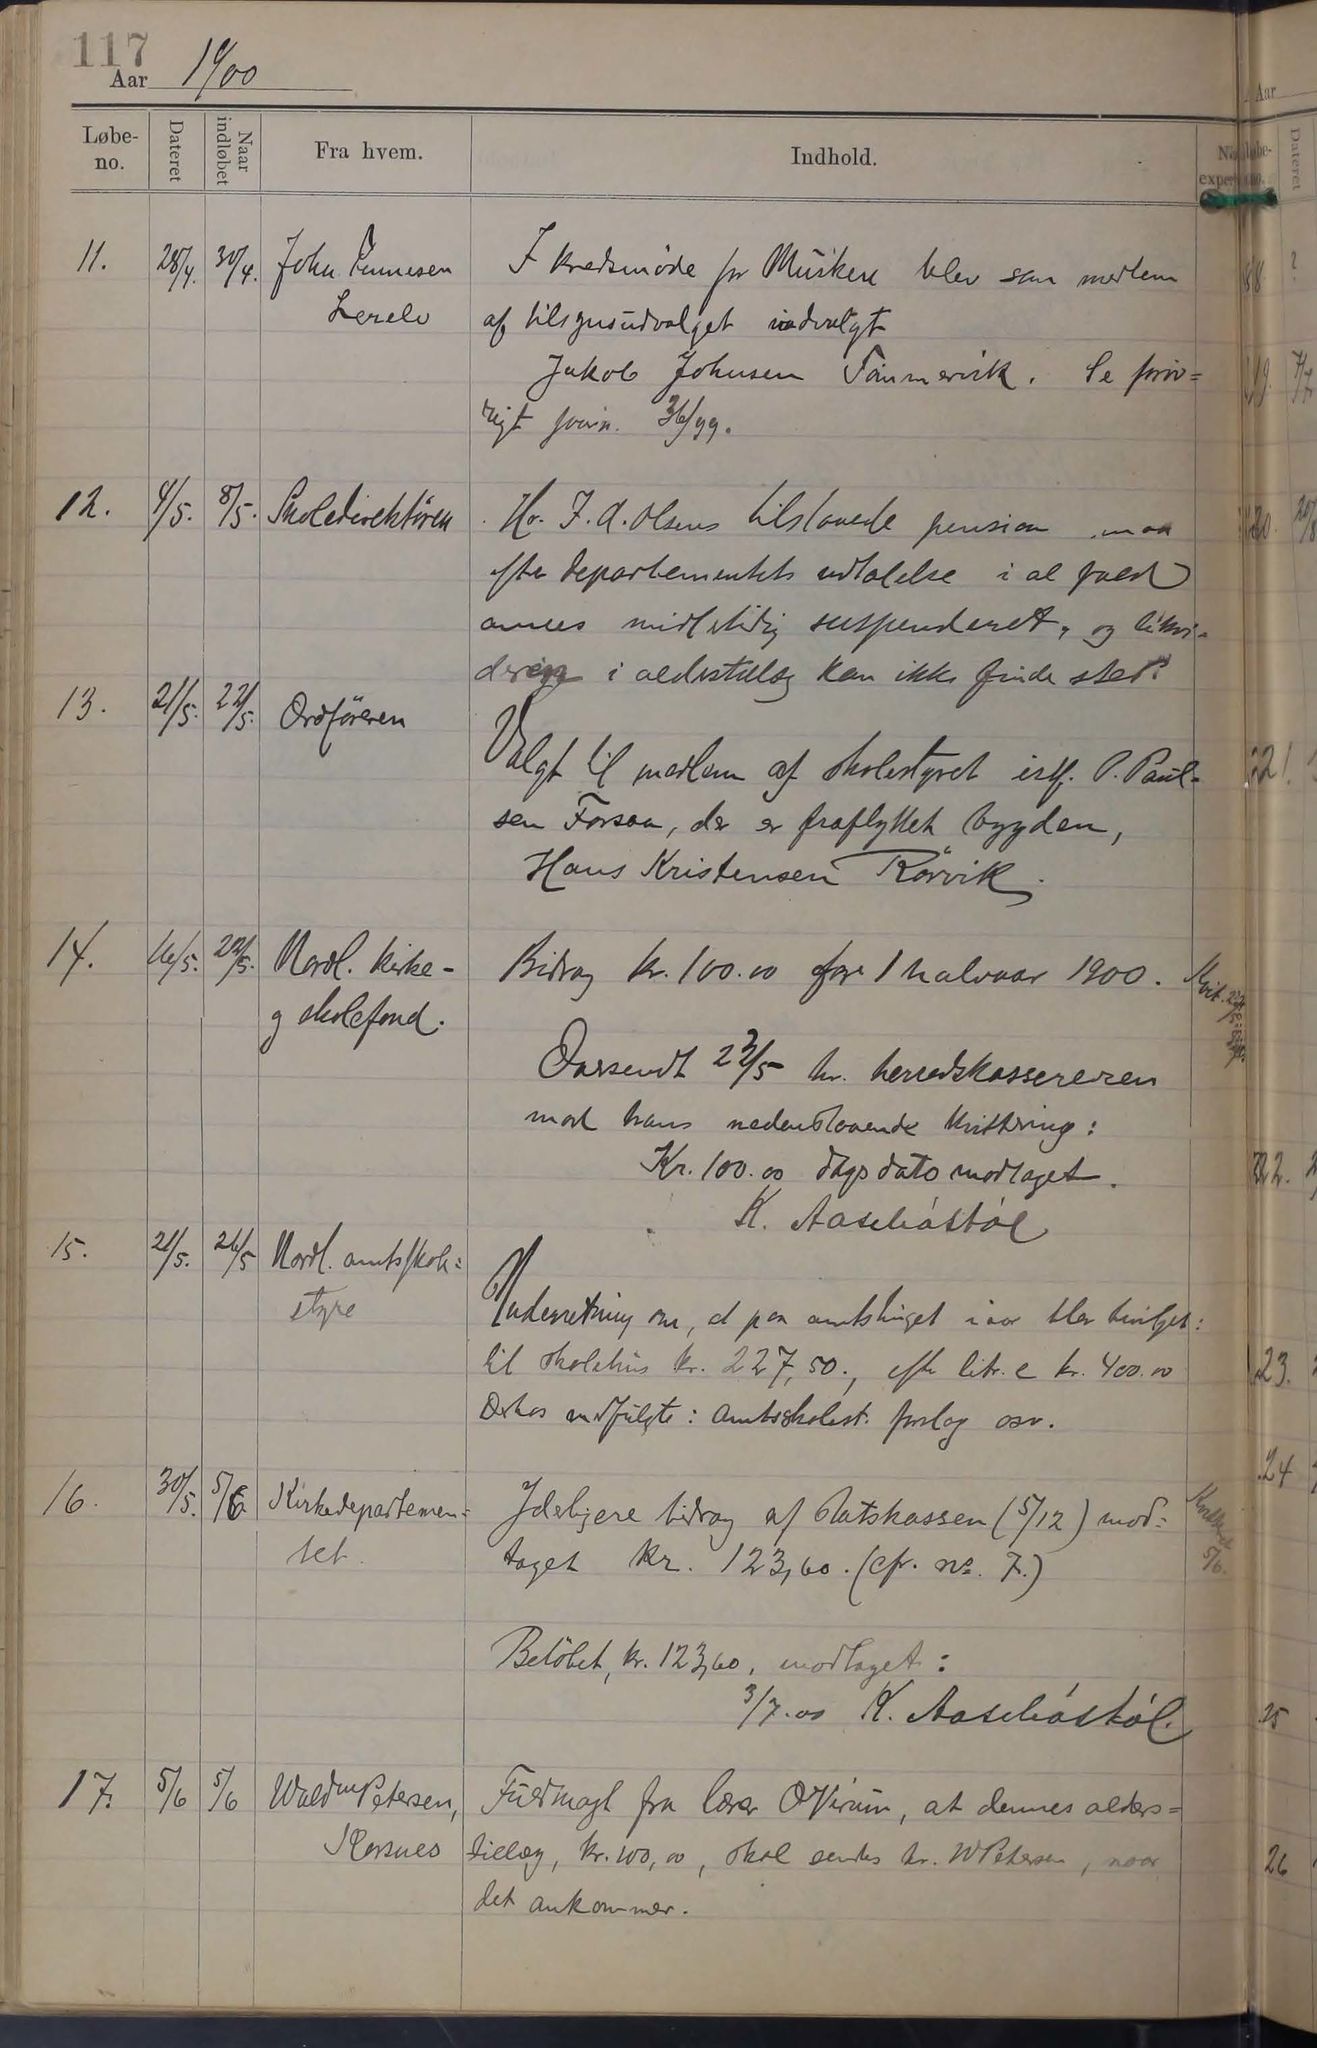 117
Aar 1900
Løbe-
no.
Dateret
Naar
indløbet
Fra hvem.
Indhold.
11. 28/4. 30/4. John
I kredsmøde for Musken blev som medlem
af tilsynsudvalget indvalgt
Jakob Johnsen Tømmervik. Se foröv=
rigt 36/99.
12. 4/5. 8/5. Skoledirektören
Hr. J. A. Olsens tilstaaede pension maa
efter departementets udtalelse i al fald
ansees midlertidig suspenderet, og likvi-
dering i alderstillæg kan ikke finde sted.
13. 21/5. 22/5. Ordföreren
Valgt til medlem af skolestyret istf. P. Paul-
sen Forsaa, der er fraflyttet bygden,
Hans Kristensen Rörvik.
14. 16/5. 22/5. Nordl. kirke-
og skolefond.
Bidrag kr. 100.00 for 1 halvaar 1900.
Kvit. 22/5
Oversendt 23/5 hr. herredskassereren
mod hans nedenstaaende kvittering:
Kr. 100.00 dags dato modtaget.
K. Aaseböstöl
15. 21/5. 26/5 Nordl. amtsskole=
styre
Underretning om, at paa amtstinget iaar blev bevilget:
til skolehus kr. 227,50., efter litr. c kr. 400.00
Derhos medfulgte: Amtsskolest. forslag osv.
16. 30/5. 5/6. Kirkedepartemen=
tet.
Yderligere bidrag af Statskassen (5/12) mod=
taget kr. 123,60. (cfr. no. 7.)
5/6.
Belöbet, kr. 123,60, modtaget:
3/7.00 K. Aaseböstöl.
17. 5/6 5/6 Waldm Petersen,
Korsnes
Fuldmagt fra lærer O Virum, at dennes alders=
tillæg, kr. 100,00, skal sendes hr. W Petersen, naar
det ankommer.